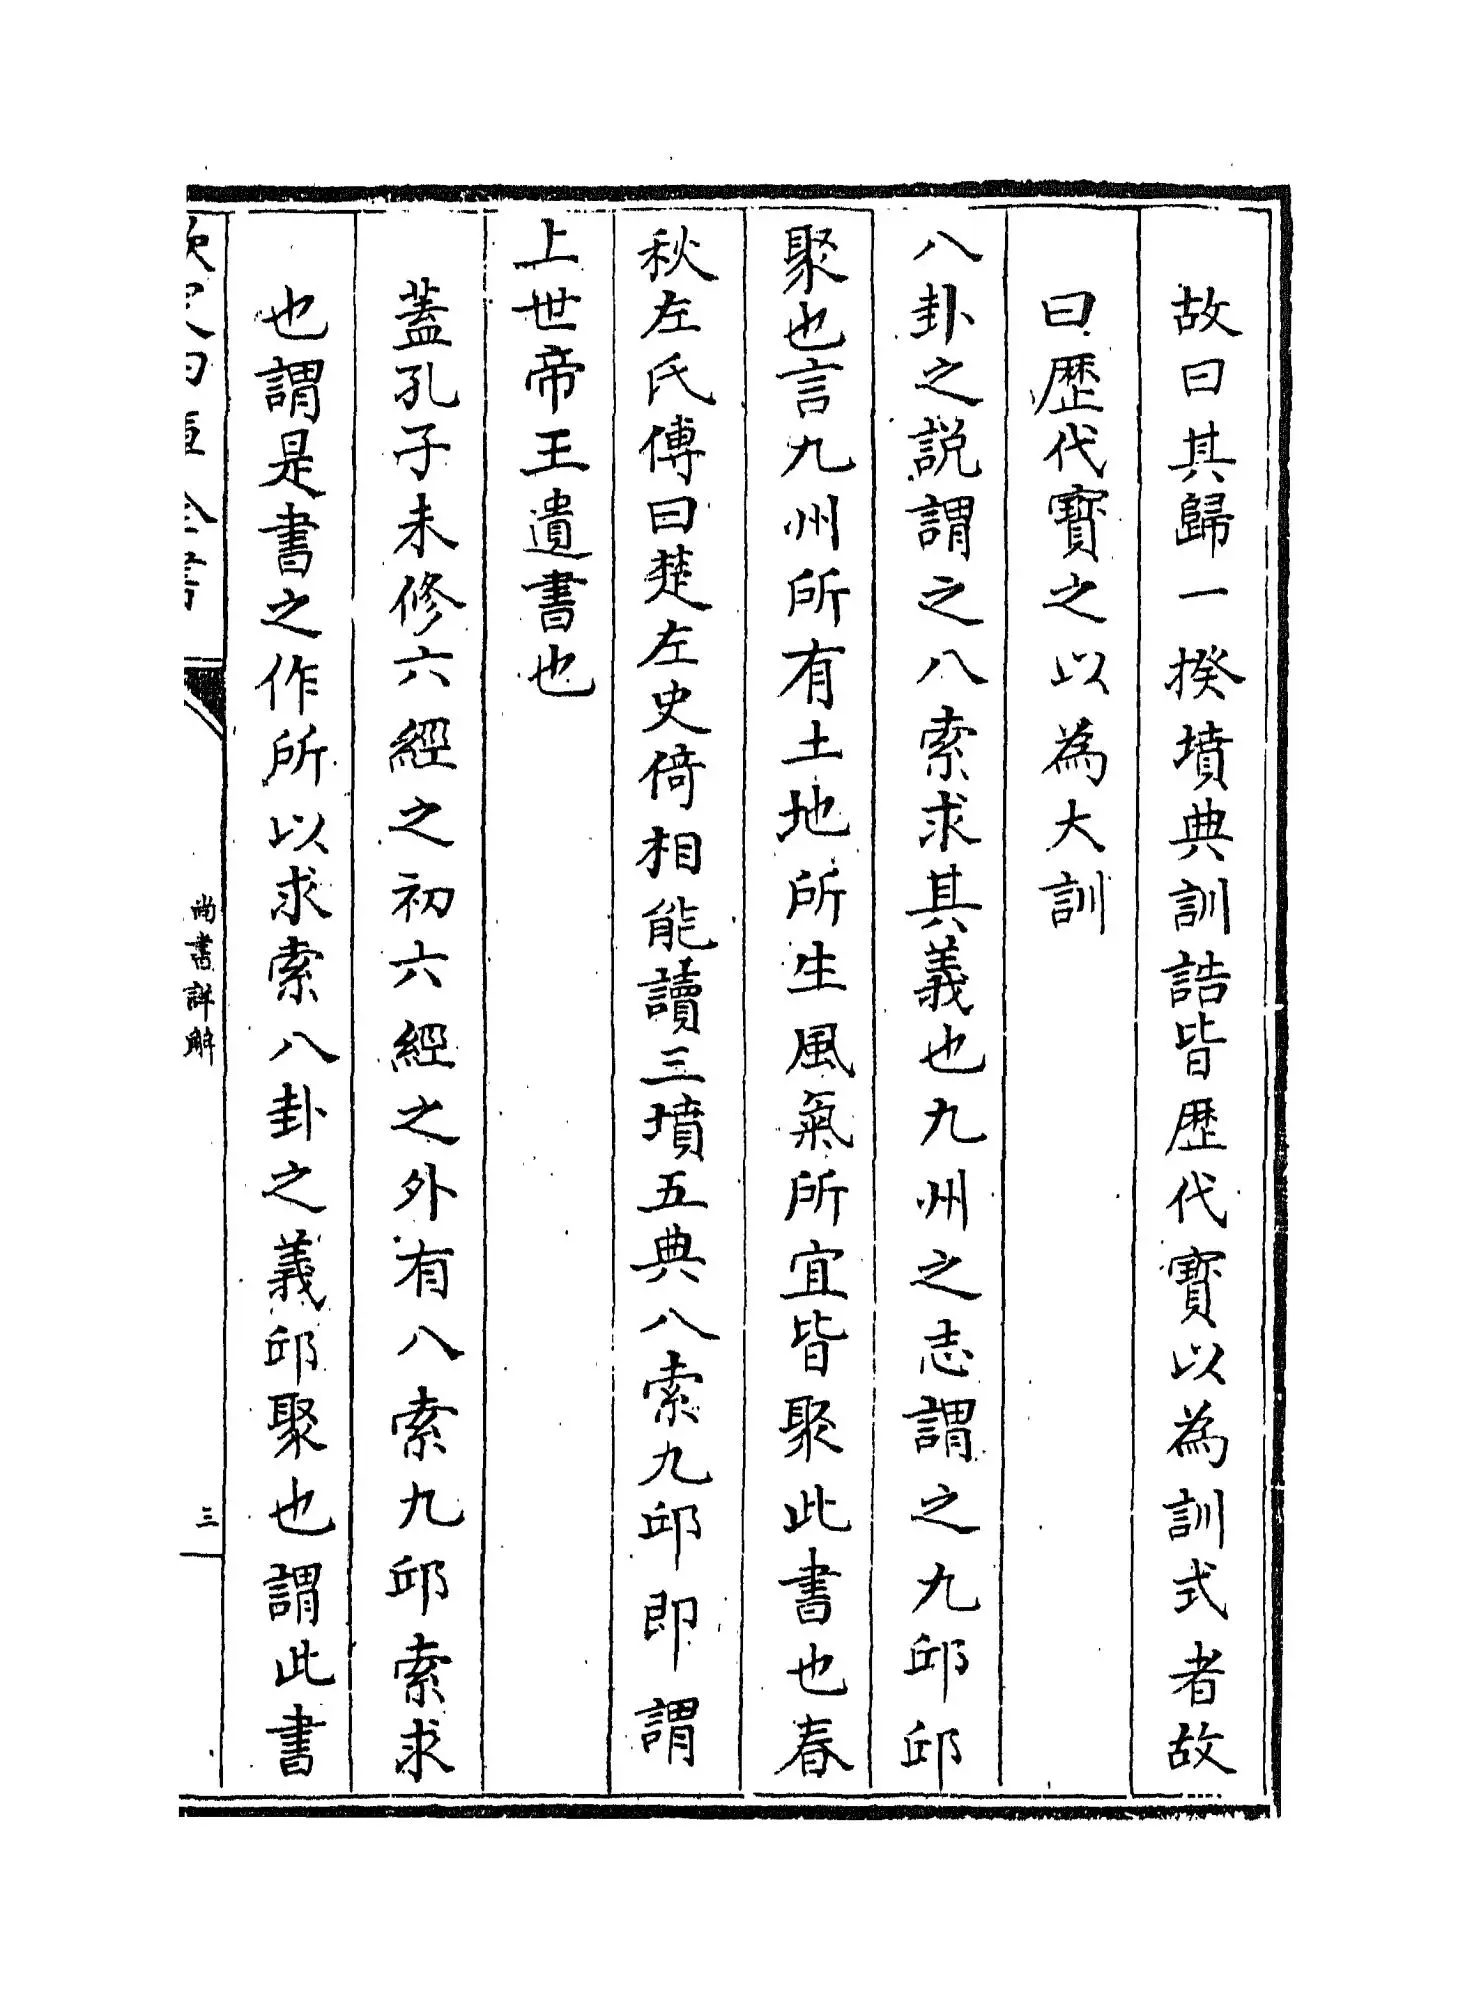 故曰其歸一揆墳典訓誥皆歷代寳以為訓式者故
曰歷代寳之以為大訓
八卦之説謂之八索求其義也九州之志謂之九邱邱
聚也言九州所有土地所生風氣所宜皆聚此書也春
秋左氏傳曰楚左史倚相能讀三墳五典八索九邱即謂
上世帝王遺書也
蓋孔子未修六經之初六經之外有八索九邱索求
也謂是書之作所以求索八卦之義邱聚也謂此書
全書
尚書詳解
三